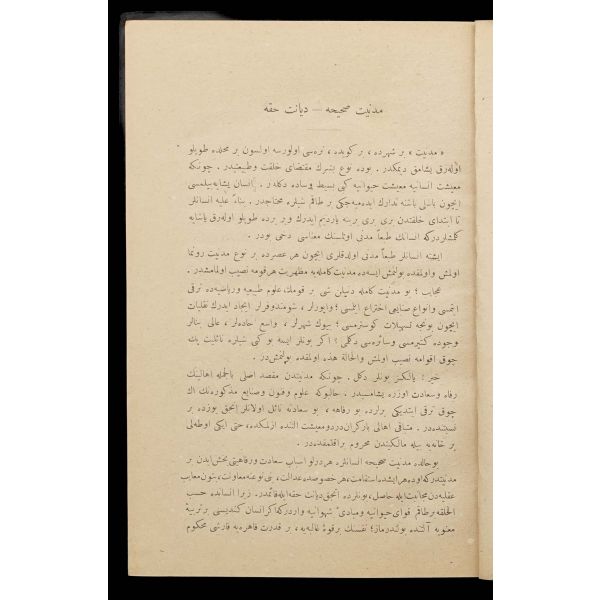 مدنیت صحیحه — دیانت حقه
« مدنیت » بر شهرده ، بر کویده ، نره‌سی اولورسه اولسون بر محلده طوپلو
اوله‌رق یشامق دیمکدر . بوده نوع بشرك مقتضای خلقت و طبیعتیدر . چونکه
معیشت انسانیه معیشت حیوانیه کبی بسیط و ساده دکلدر . انسان یشایه‌بیلمسی
ایچون باشلی باشنه تدارك ایده‌میه‌جکی بر طاقم شیلره محتاجدر . بناءً علیه انسانلر
تا ابتدای خلقتدن بری بری برینه یاردیم ایدرك و بر یرده طوپلو اوله‌رق یاشایه
کلمشلردرکه انسانك طبعاً مدنی اولمسنك معناسی دخی بودر .
ایشته انسانلر طبعاً مدنی اولدقلری ایچون هر عصرده بر نوع مدنیت رونما
اولمش و اولمقده بولنمش ایسه‌ده مدنیت کامله‌یه مظهریت هر قومه نصیب اولمامشدر .
عجبا ؛ بو مدنیت کامله دنیلن شی بر قومك علوم طبیعیه و ریاضیه‌ده ترقی
ایتمسی و انواع صنایعی اختراع ایلمسی ؛ واپورلر ، شومندوفرلر ایجاد ایدرك نقلیات
ایچون بونجه تسهیلات کوسترمسی ؛ بیوك شهرلر ، واسع جاده‌لر ، عالی بنالر
وجوده کتیرمسی و سائره‌سی دکلمی ؟ اکر بونلر ایسه بو کبی شیلره نائلیت پك
چوق اقوامه نصیب اولمش والحالة هذه اولمقده بولنمش‌در .
خیر ؛ یالکز بونلر دکل . چونکه مدنیتدن مقصد اصلی بالجمله اهالینك
رفاه و سعادت اوزره یشامسیدر . حالبوکه علوم و فنون و صنایع مذکوره‌نك اك
چوق ترقی ایتدیکی یرلرده بو رفاهه ، بو سعادته نائل اولانلر آنجق یوزده بر
نسبتنده‌در . متباقی اهالی بارکران درد و معیشت آلتنده ازلمکده ، حتی ایکی اوطه‌لی
بر خانه‌یه بیله مالکیتدن محروم براقلمقده‌در .
بو حالده مدنیت صحیحه انسانلره هر درلو اسباب سعادت و رفاهیتی بخش ایدن بر
مدنیتدرکه اوده هر ایشده استقامت ، هر خصوصده عدالت ، بنی نوعنه معاونت ، بتون معایب
عقلیه‌دن مجانبت ایله حاصل ، بونلرده آنجق دیانت حقه ایله قائمدر . زیرا انسانده حسب
الخلقه بر طاقم قوای حیوانیه و مبادیٔ شهوانیه واردرکه اکر انسان کندیسی بر تربیهٔ
معنویه آلتنده بولندرماز ؛ نفسنك بر قوهٔ غالبه‌یه ، بر قدرت قاهره‌یه قارشی محکوم